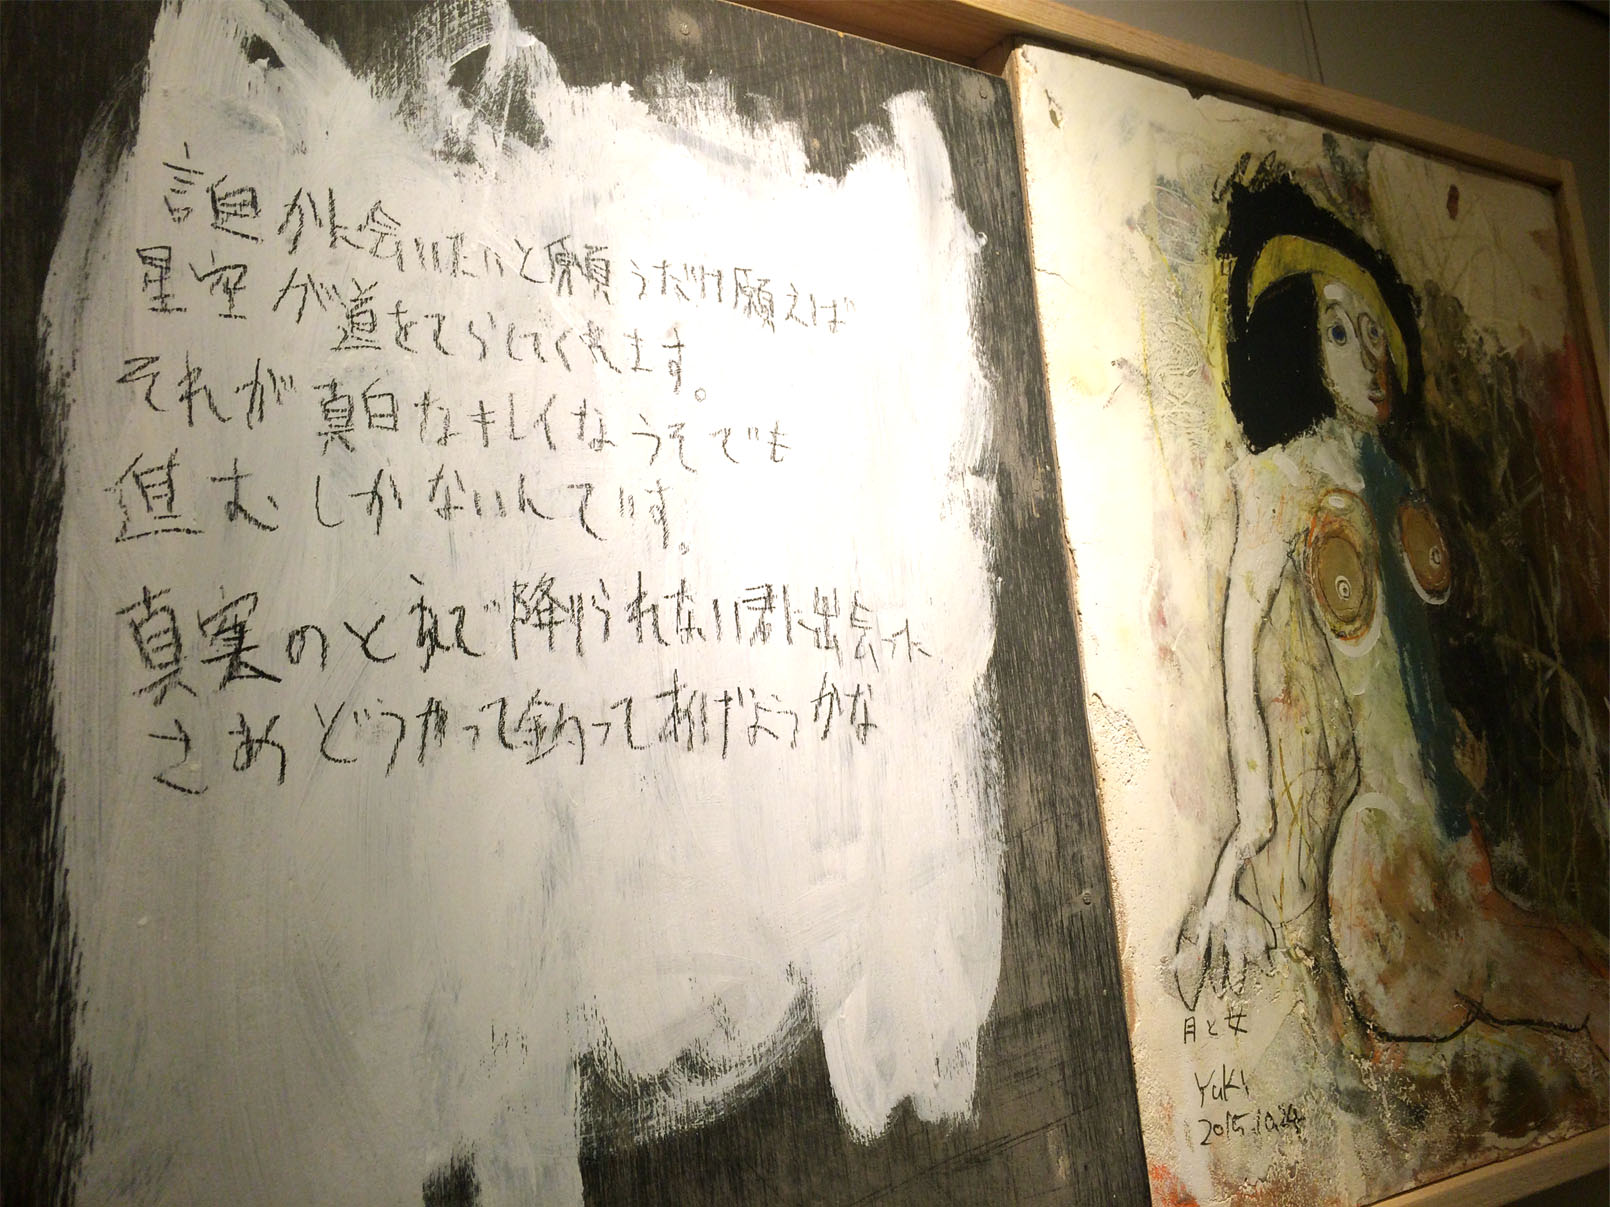 誰かに会いたいと願うだけ願えば
星空が道をてらしてくれます。
それが真白なキレイなうそでも
進むしかないんです。
真実の 降りられない君に出会った
さあどうやって釣ってあげようかな
月と女
Yuki
2015.10.24